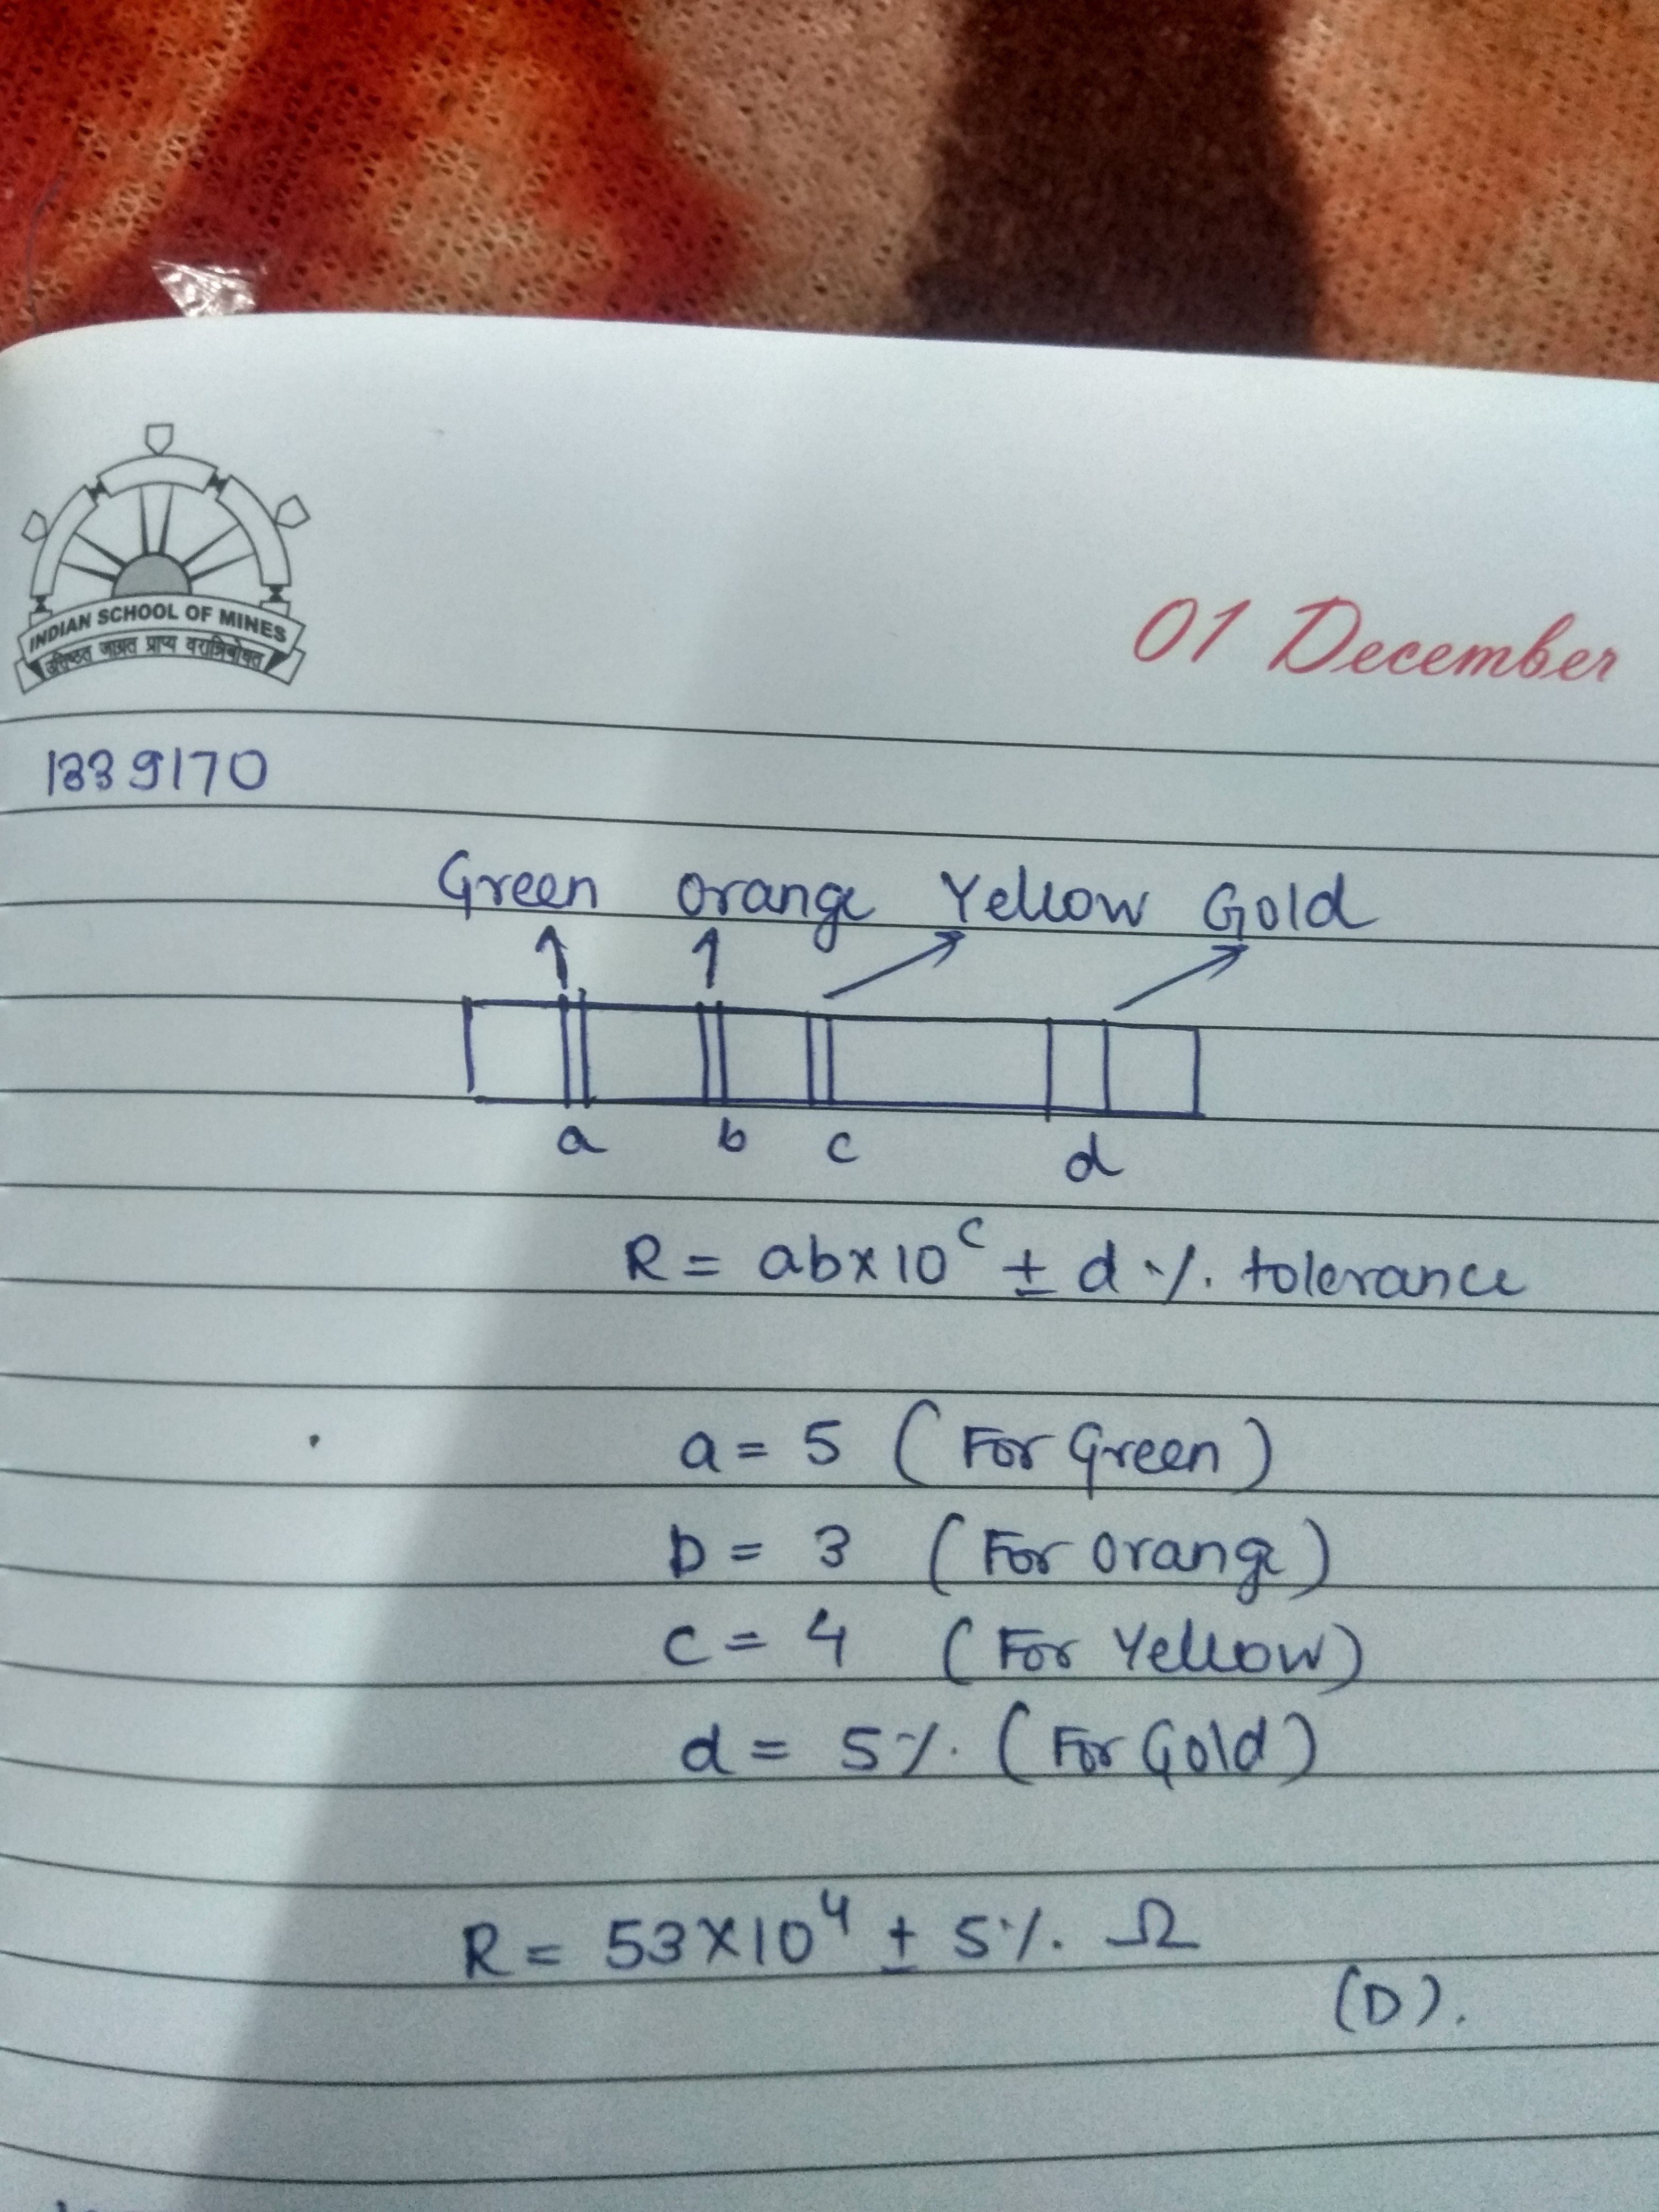 INDIAN SCHOOL OF MINES
उत्तिष्ठत जाग्रत प्राप्य वरान्निबोधत
01 December
1339170
Green Orange Yellow Gold
a b c d
R = ab×10^c ± d % tolerance
a = 5 (For Green)
b = 3 (For Orange)
c = 4 (For Yellow)
d = 5% (For Gold)
R = 53×10^4 ± 5% Ω
(D).